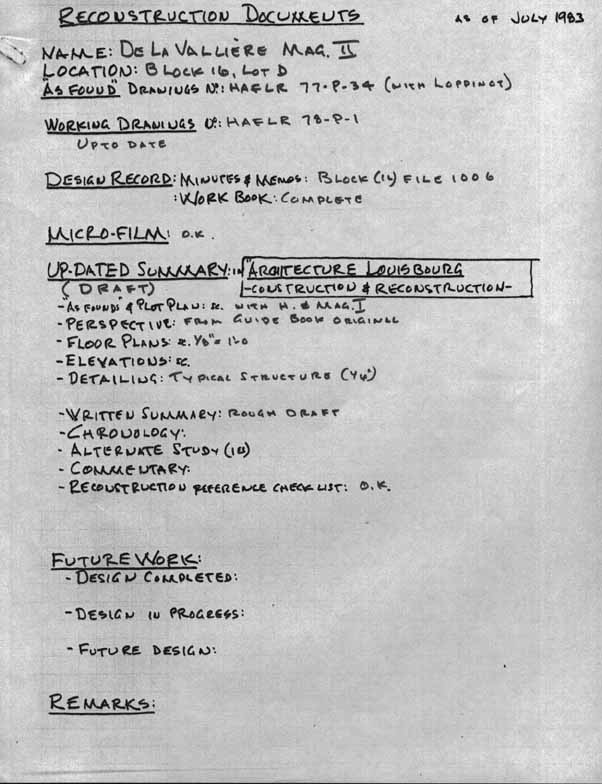 RECONSTRUCTION DOCUMENTS AS OF JULY 1983
NAME: DE LA VALLIÈRE MAG. II
LOCATION: BLOCK 16, LOT D
"AS FOUND" DRAWINGS Nº: HAFLR 77-P-34 (WITH LOPPINOT)
WORKING DRAWINGS Nº: HAFLR 78-P-1
UP TO DATE
DESIGN RECORD: MINUTES & MEMOS: BLOCK (16) FILE 1006
: WORK BOOK: COMPLETE
MICRO-FILM: O.K.
UP-DATED SUMMARY: IN "ARCHITECTURE LOUISBOURG
(DRAFT) -CONSTRUCTION & RECONSTRUCTION-
- "AS FOUNDS" & PLOT PLAN: WITH H. & MAG. I
- PERSPECTIVE: FROM GUIDE BOOK ORIGINAL
- FLOOR PLANS: 1/8" = 1'-0
- ELEVATIONS:
- DETAILING: TYPICAL STRUCTURE
- WRITTEN SUMMARY: ROUGH DRAFT
- CHRONOLOGY:
- ALTERNATE STUDY
- COMMENTARY:
- RECONSTRUCTION REFERENCE CHECK LIST: O.K.
FUTURE WORK:
- DESIGN COMPLETED:
- DESIGN IN PROGRESS:
- FUTURE DESIGN:
REMARKS: